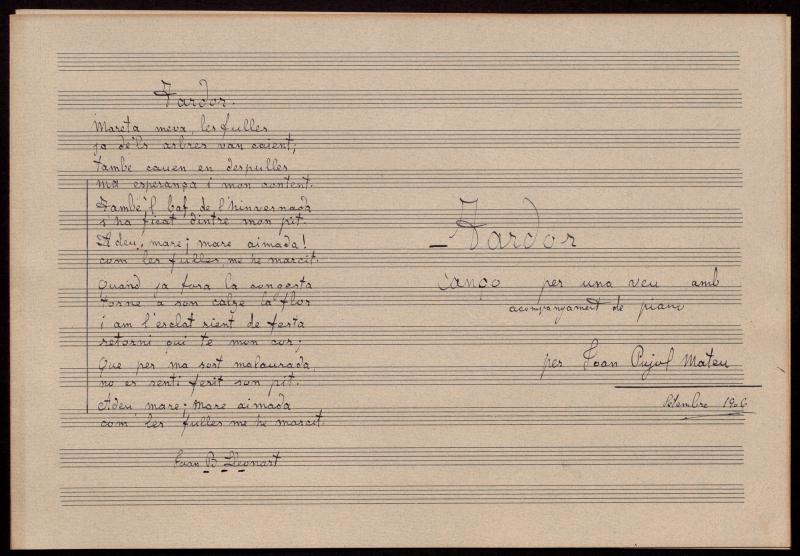 Tardor.
Mareta meva, les fulles
ja dels arbres van caient;
també cauen en despulles
ma esperança i mon content.
També'l baf de l'hinvernada
s'ha ficat dintre mon pit.
Adeu, mare; mare aimada!
com les fulles me he marcit.
Quand ja fora la congesta
torne a son calze la flor
i am l'esclat rient de festa
retorni qui te mon cor;
Que per ma sort malaurada
no es senti ferit son pit.
Adeu, mare; mare aimada
com les fulles me he marcit.
Joan B. Lleonart
Tardor
cançó per una veu amb
acompanyament de piano
per Joan Pujol Mateu
Setembre 1906